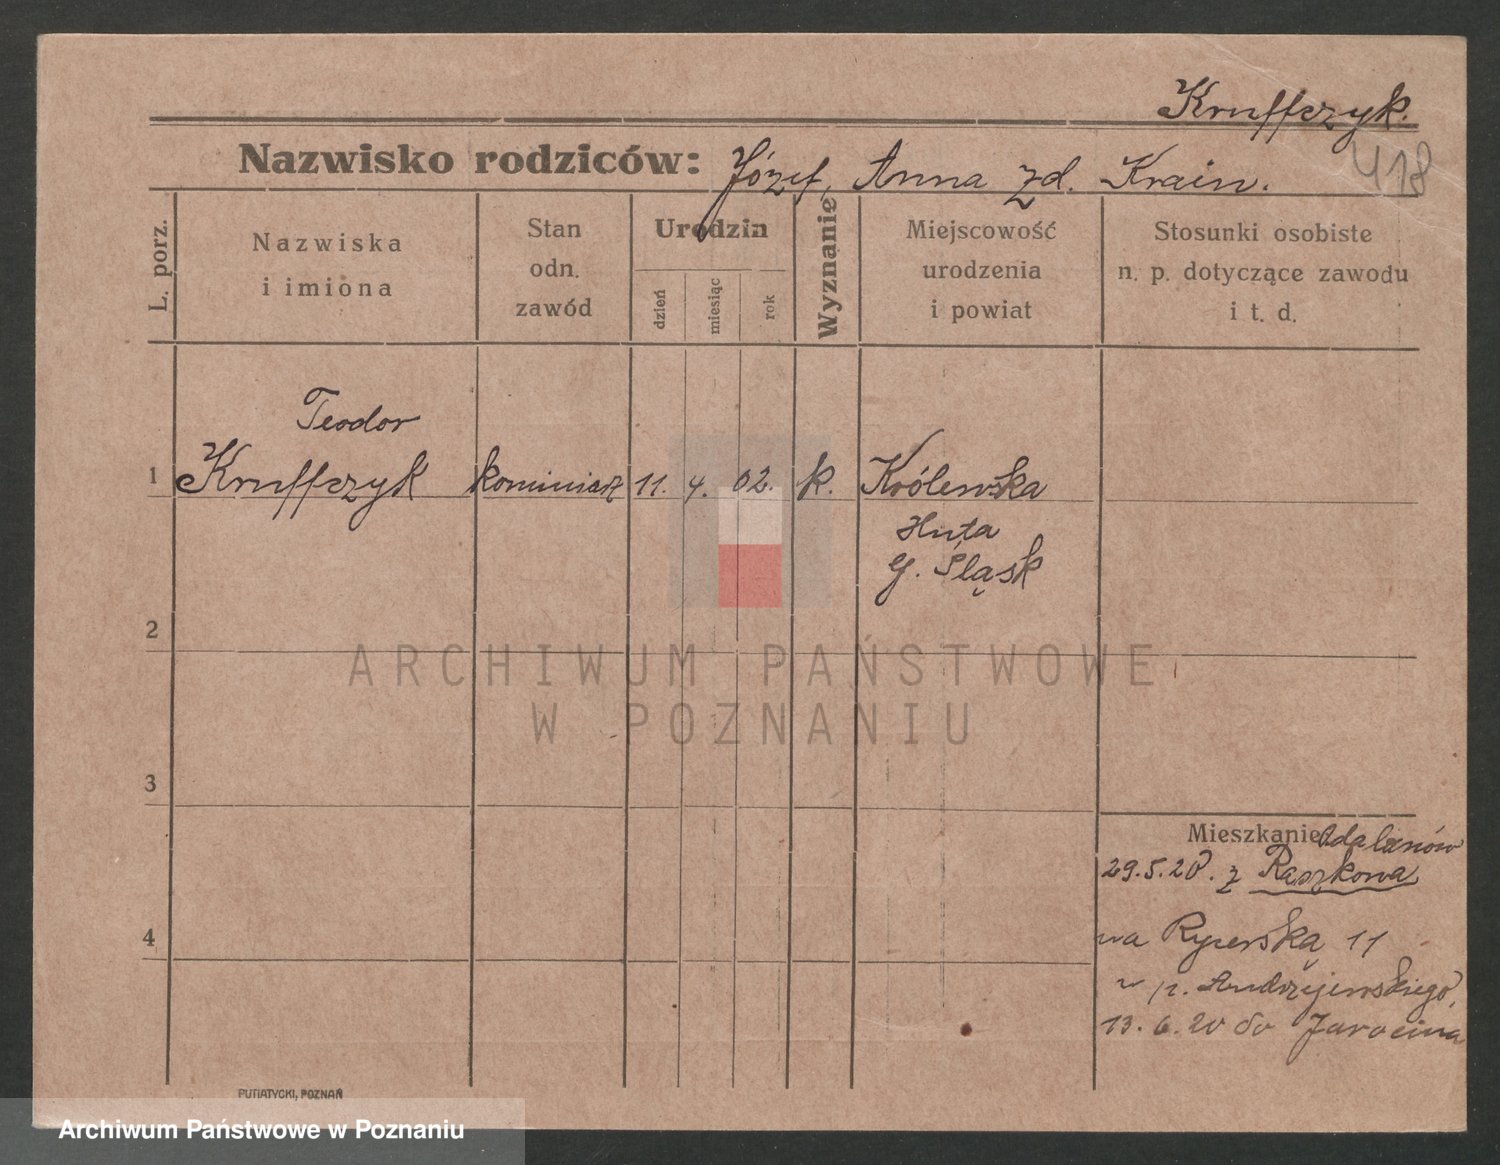 Kruffczyk.
Nazwisko rodziców: Józef, Anna zd. Krain.
418
L. porz.
Nazwiska
i imiona
Stan
odn.
zawód
Urodzin
dzień
miesiąc
rok
Wyznanie
Miejscowość
urodzenia
i powiat
Stosunki osobiste
n. p. dotyczące zawodu
i t. d.
Teodor
1 Kruffczyk kominiarz 11. 4. 02. k. Królewska
Huta
G. Śląsk
2
ARCHIWUM PAŃSTWOWE
W POZNANIU
3
Mieszkanie Odalanów
29.5.20. z Raszkowa
4
na Rycerską 11
u p. Andrzejewskiego,
13.6.20 do Jarocina
PUTIATYCKI, POZNAŃ
Archiwum Państwowe w Poznaniu